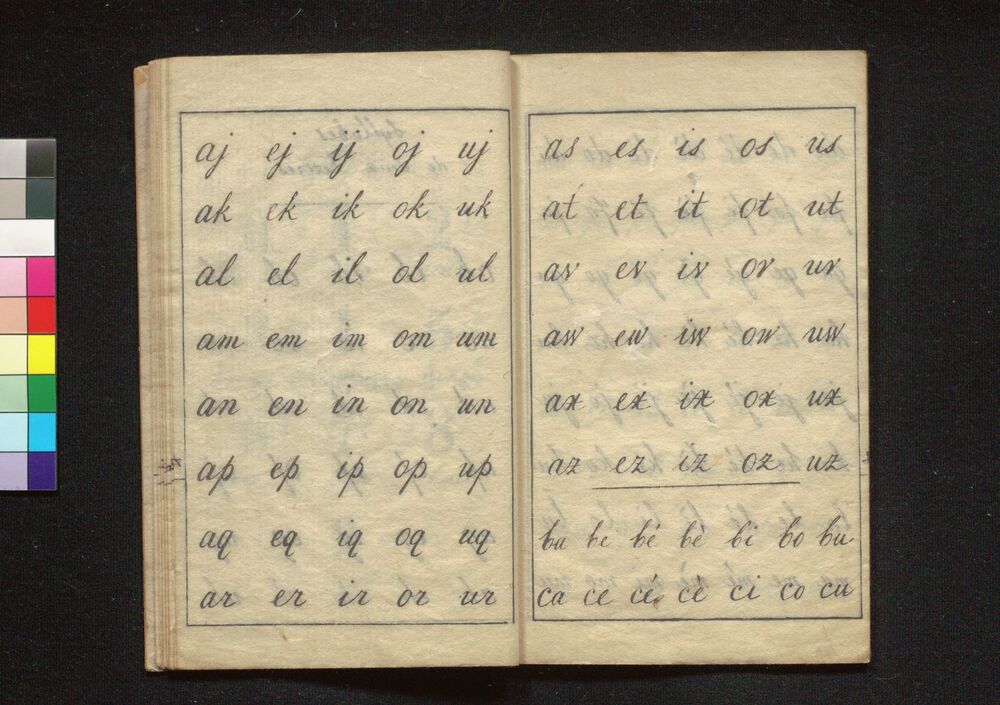 aj ej ij oj uj
ak ek ik ok uk
al el il ol ul
am em im om um
an en in on un
ap ep ip op up
aq eq iq oq uq
ar er ir or ur
as es is os us
at et it ot ut
av ev iv ov uv
aw ew iw ow uw
ax ex ix ox ux
az ez iz oz uz
ba be bé bè bi bo bu
ca ce cé cè ci co cu